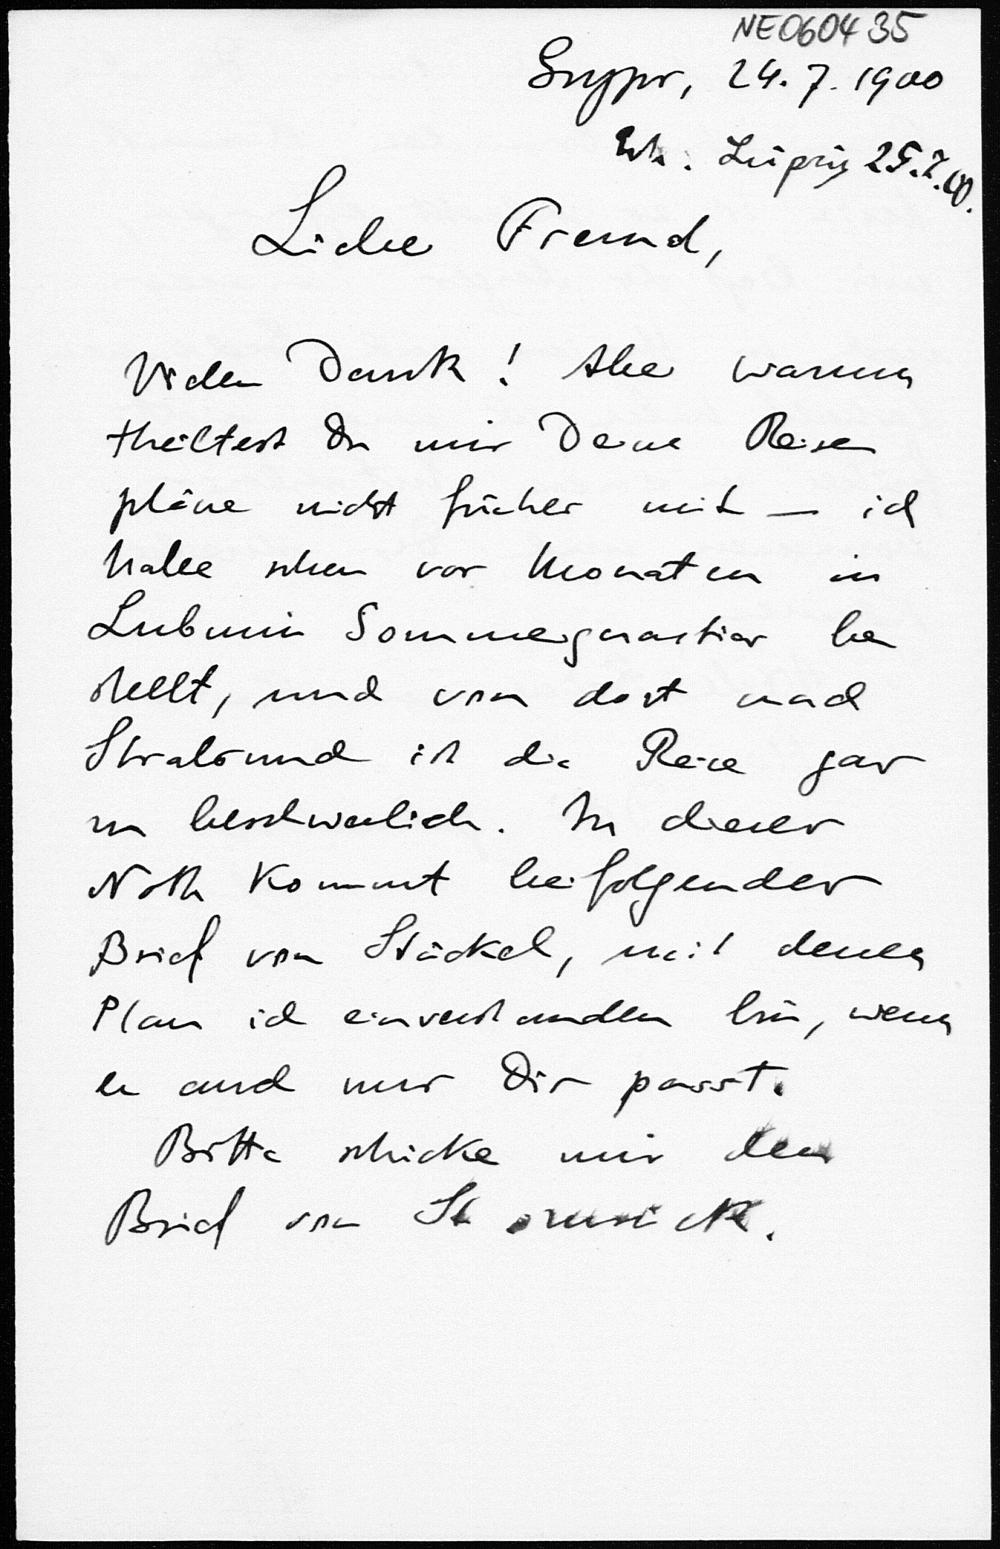 NE060435
Grypsw, 24.7.1900
Erh. Leipzig 25.7.00.
Lieber Freund,
Vielen Dank! Aber warum
theiltest Du mir Deine Reise
pläne nicht früher mit — ich
habe schon vor Monaten in
Lubmin Sommerquartier be
stellt, und von dort nach
Stralsund ist die Reise gar
zu beschwerlich. In dieser
Noth kommt beifolgender
Brief von Stäckel, mit dessen
Plan ich einverstanden bin, wenn
er auch nur Dir passt.
Bitte schicke mir den
Brief von St zurück.